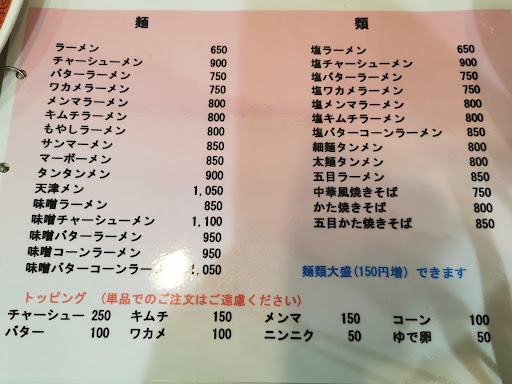 麺 類
ラーメン 650
チャーシューメン 900
バターラーメン 750
ワカメラーメン 750
メンマラーメン 800
キムチラーメン 800
もやしラーメン 800
サンマーメン 850
マーボーメン 850
タンタンメン 900
天津メン 1,050
味噌ラーメン 850
味噌チャーシューメン 1,100
味噌バターラーメン 950
味噌コーンラーメン 950
味噌バターコーンラーメン 1,050
塩ラーメン 650
塩チャーシューメン 900
塩バターラーメン 750
塩ワカメラーメン 750
塩メンマラーメン 800
塩キムチラーメン 800
塩バターコーンラーメン 850
細麺タンメン 800
太麺タンメン 800
五目ラーメン 850
中華風焼きそば 750
かた焼きそば 800
五目かた焼きそば 850
麺類大盛(150円増) できます
トッピング (単品でのご注文はご遠慮ください)
チャーシュー 250 キムチ 150 メンマ 150 コーン 100
バター 100 ワカメ 100 ニンニク 50 ゆで卵 50